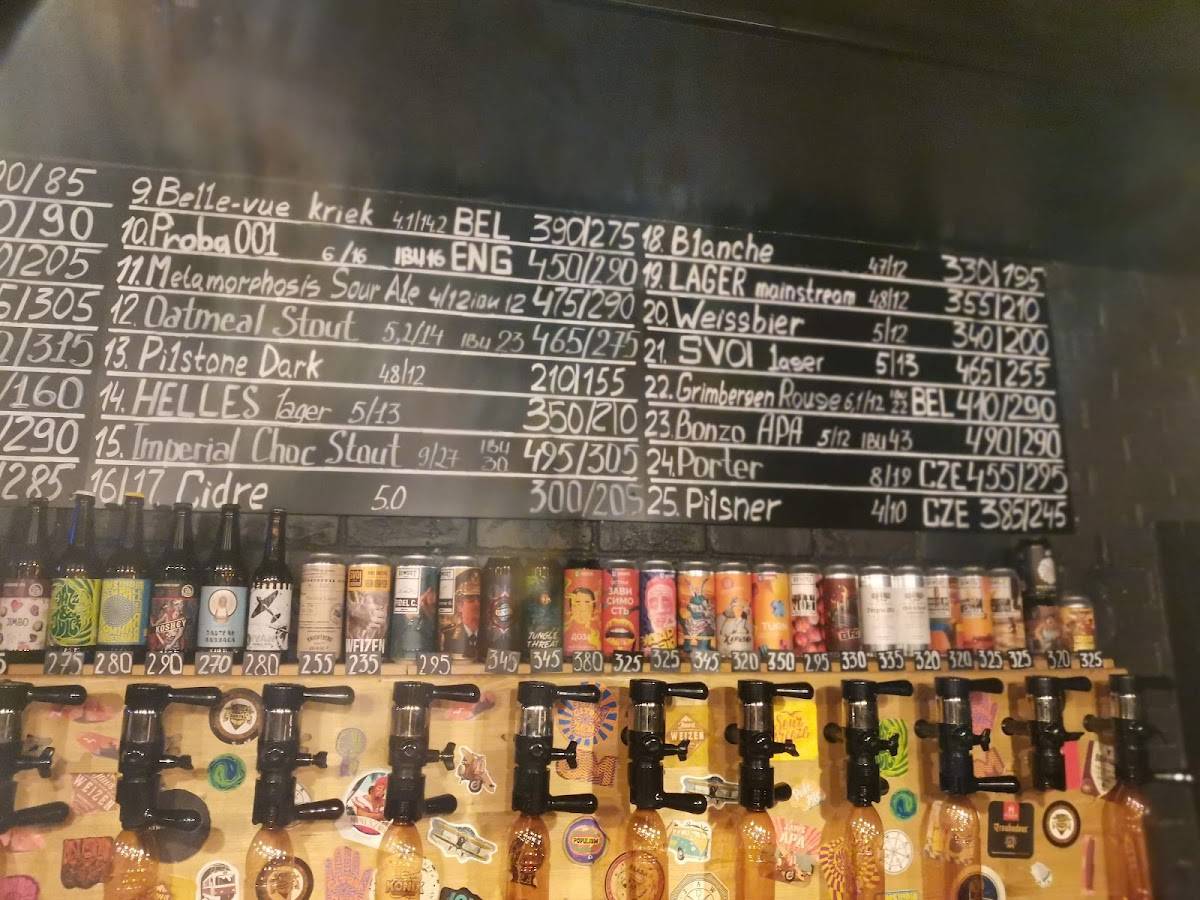 00/85
0/90
0/205
5/305
0/315
/160
/290
/285
9. Belle-vue kriek 4.1/14.2 BEL 390/275
10. Proba 001 6/16 IBU 16 ENG 450/290
11. Metamorphosis Sour Ale 4/12 ibu 12 475/290
12. Oatmeal Stout 5,2/14 IBU 23 465/275
13. Pilstone Dark 4.8/12 210/155
14. HELLES lager 5/13 350/210
15. Imperial Choc Stout 9/27 IBU 30 495/305
16/17. Cidre 5.0 300/205
18. Blanche 4,7/12 330/195
19. LAGER mainstream 4,8/12 355/210
20. Weissbier 5/12 340/200
21. SVOI lager 5/13 465/255
22. Grimbergen Rouge 6,1/12 IBU 22 BEL 410/290
23. Bonzo APA 5/12 IBU 43 490/290
24. Porter 8/19 CZE 455/295
25. Pilsner 4/10 CZE 385/245
JIMBO
KOSHEY
WEIZEN
FIDEL C.
JUNGLE THREAT
ДОЗА
ЗАВИ
СИМО
СТЬ
275 280 290 270 280 255 235 295 345 345 380 325 325 345 320 350 295 330 335 320 320 325 325 320 325
WEIZEN
WEIZEN
APA
KONIX
Troubadour